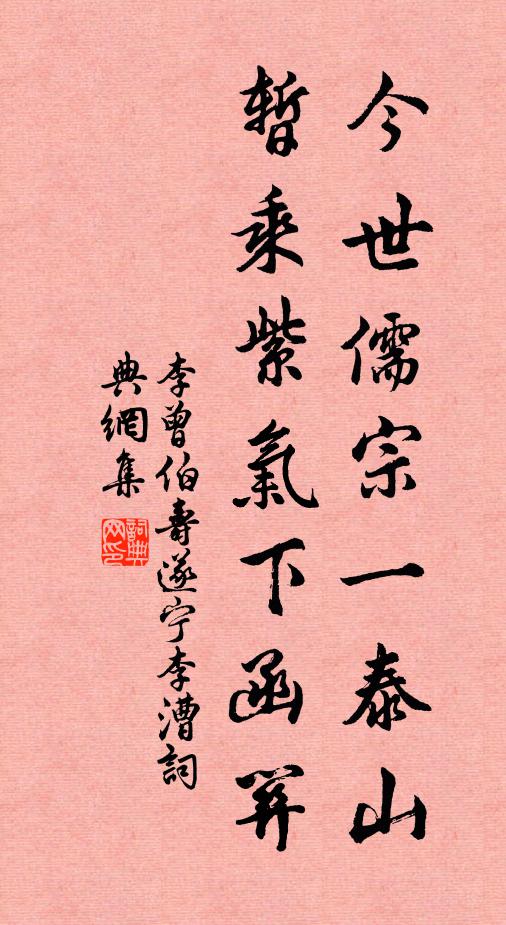 今世儒宗一泰山
暫乘紫氣下函關
李曾伯壽遂宁李漕詞
典網集
詞典網印